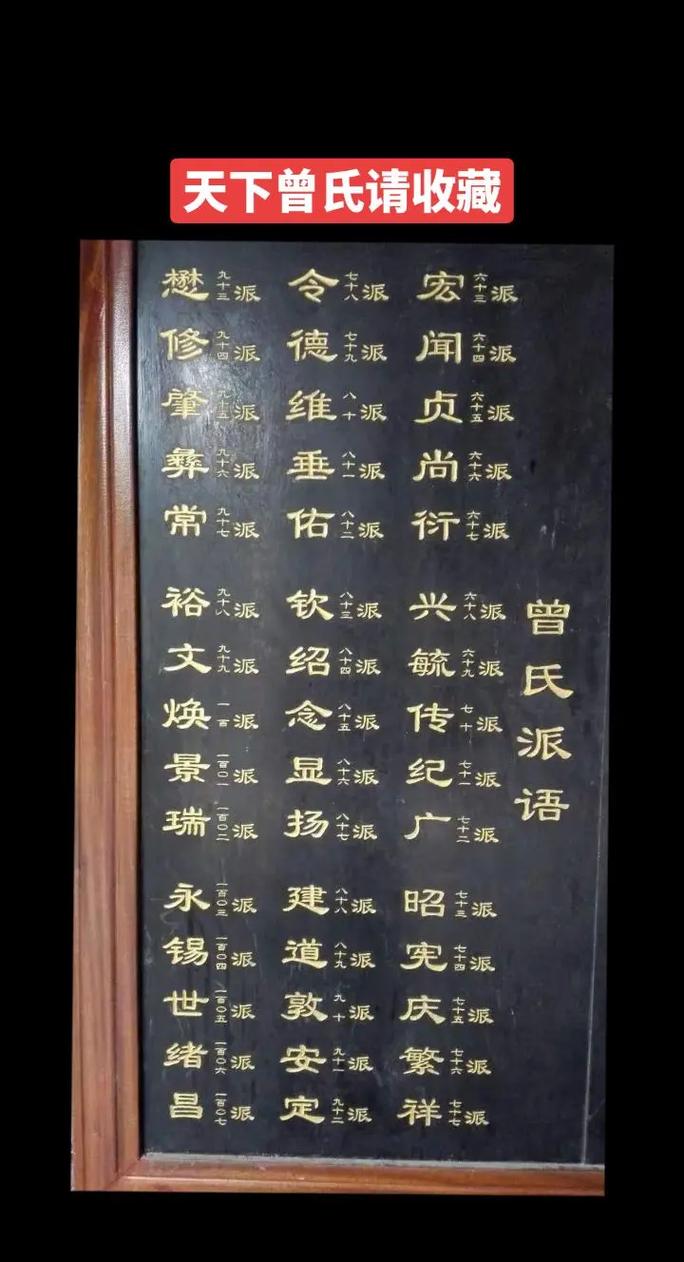 天下曾氏请收藏
曾氏派语
宏六十三派
闻六十四派
贞六十五派
尚六十六派
衍六十七派
兴六十八派
毓六十九派
传七十派
纪七十一派
广七十二派
昭七十三派
宪七十四派
庆七十五派
繁七十六派
祥七十七派
令七十八派
德七十九派
维八十派
垂八十一派
佑八十二派
钦八十三派
绍八十四派
念八十五派
显八十六派
扬八十七派
建八十八派
道八十九派
敦九十派
安九十一派
定九十二派
懋九十三派
修九十四派
肇九十五派
彝九十六派
常九十七派
裕九十八派
文九十九派
焕一百派
景一百〇一派
瑞一百〇二派
永一百〇三派
锡一百〇四派
世一百〇五派
绪一百〇六派
昌一百〇七派